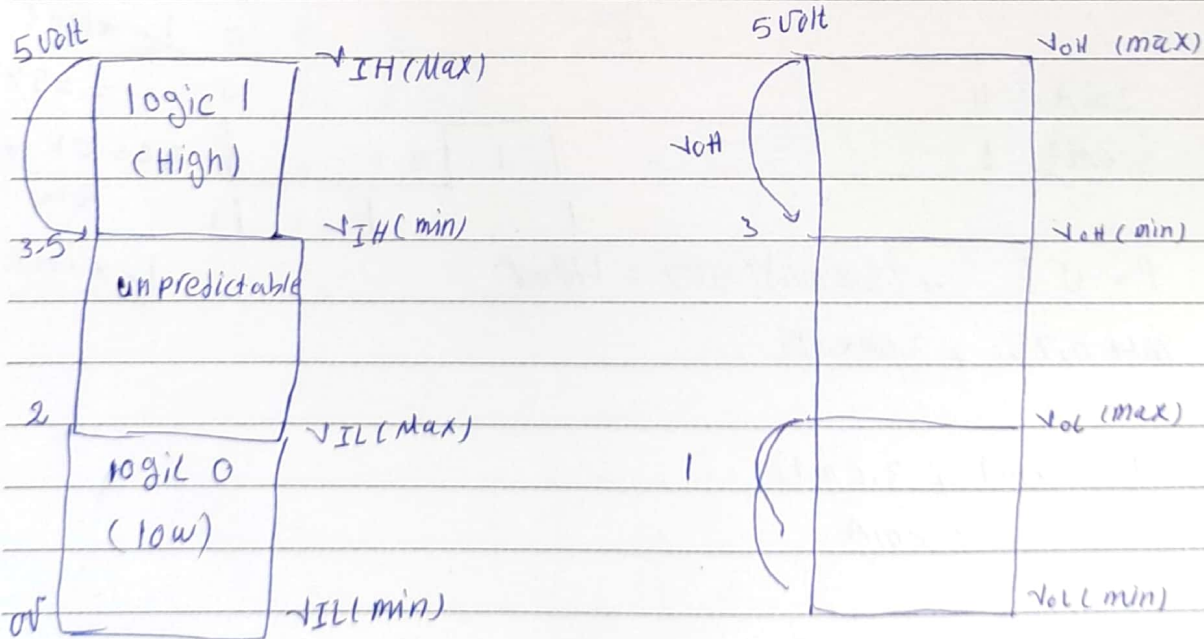 5 Volt
VIH (Max)
logic 1
(High)
3.5
VIH (min)
unpredictable
2
VIL (Max)
logic 0
(low)
0V
VIL (min)
5 Volt
VOH (max)
VOH
3
VOH (min)
VOL (max)
1
VOL (min)